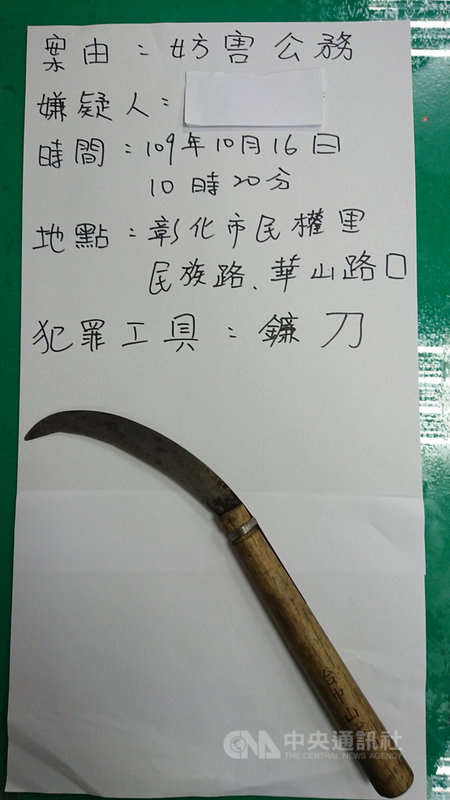 案由：妨害公務
嫌疑人：
時間：109年10月16日
10時20分
地點：彰化市民權里
民族路、華山路口
犯罪工具：鐮刀
台中山
CNA 中央通訊社
THE CENTRAL NEWS AGENCY